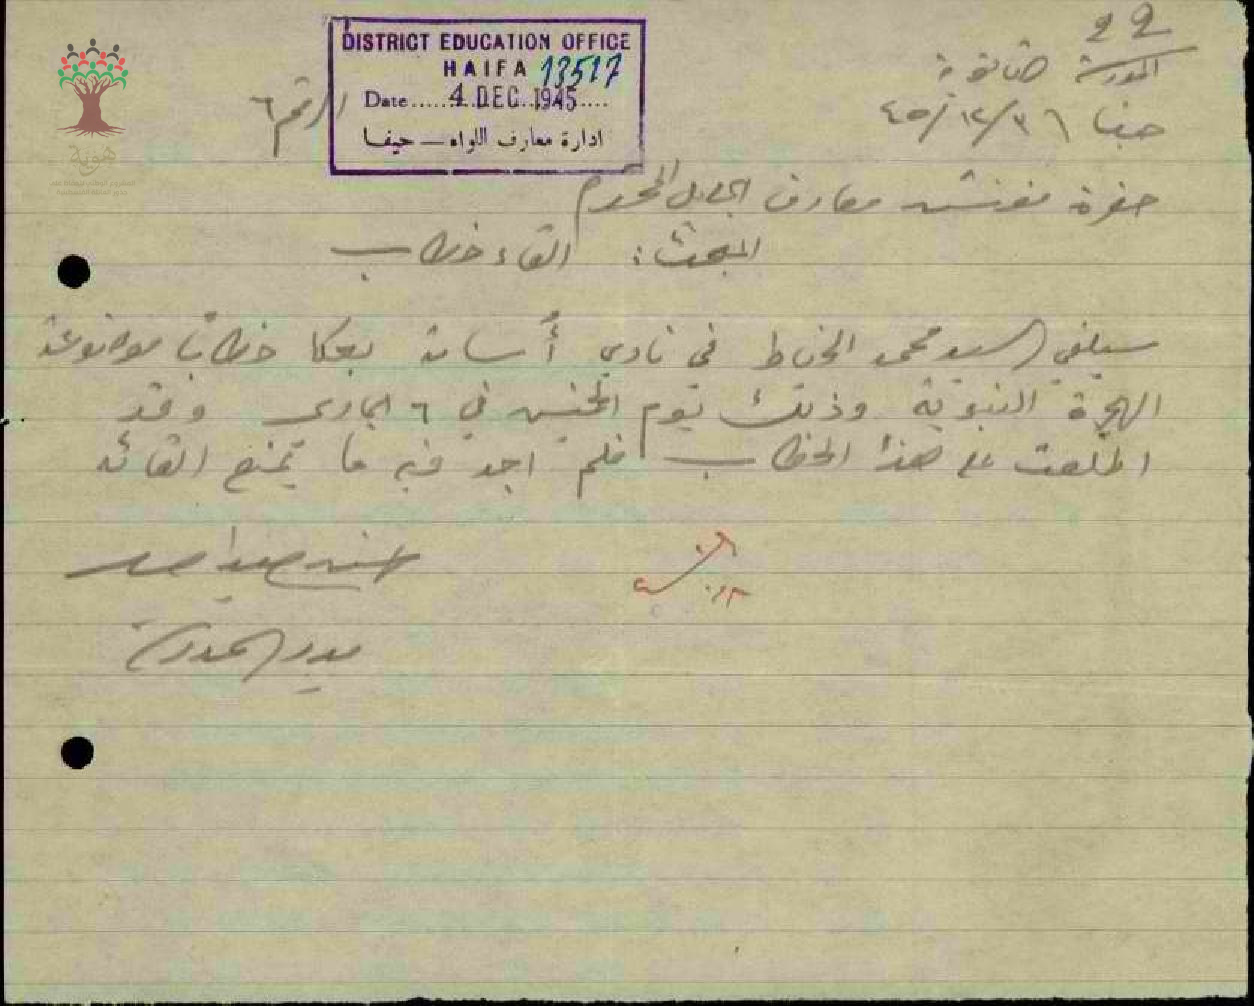 22
المدرسة الثانوية
حيفا ٤٥/١٢/٣
الرقم ٦
DISTRICT EDUCATION OFFICE
HAIFA 13517
Date......4 DEC. 1945....
ادارة معارف اللواء — حيفا
حضرة مفتش معارف الجليل المحترم
المبحث: القاء خطاب
سيلقي السيد محمد الخياط في نادي أسامة بعكا خطابا موضوعه
الهجرة النبوية وذلك يوم الخميس في ٦ الجاري وقد
اطلعت على هذا الخطاب فلم اجد فيه ما يمنع القائه
مدير المدرسة
هوية